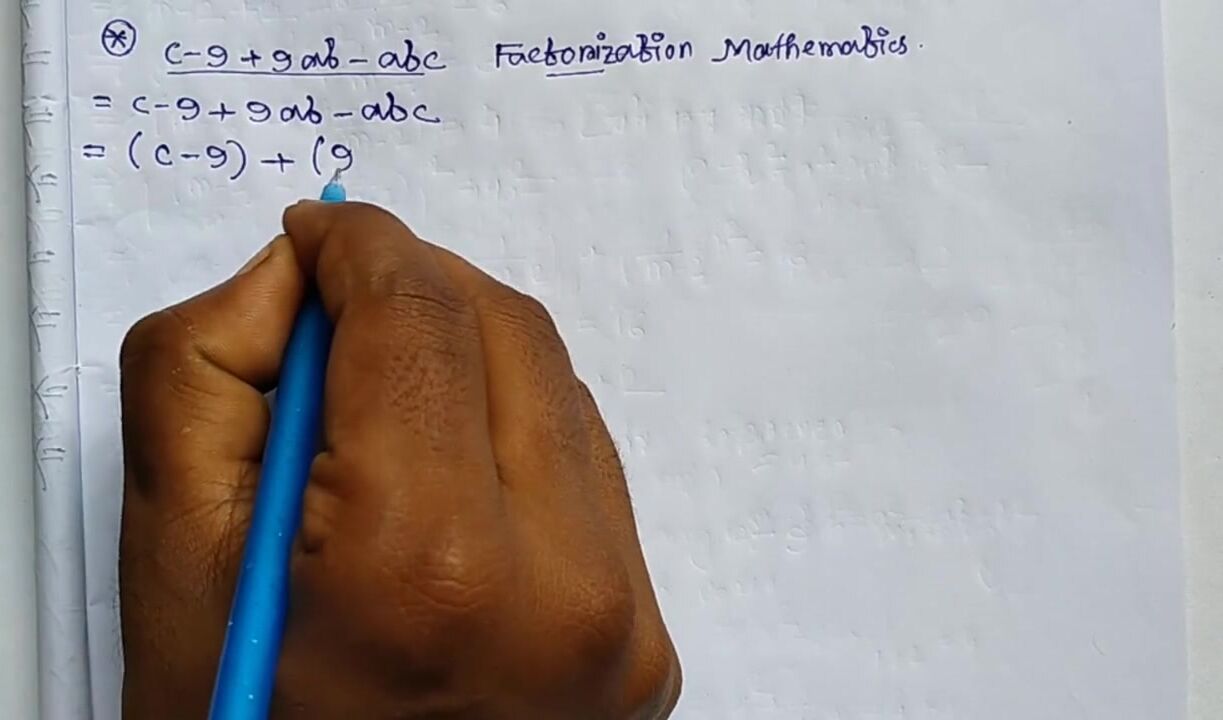 * c-9+9ab-abc Factorization Mathematics.
= c-9+9ab-abc
= (c-9) + (9